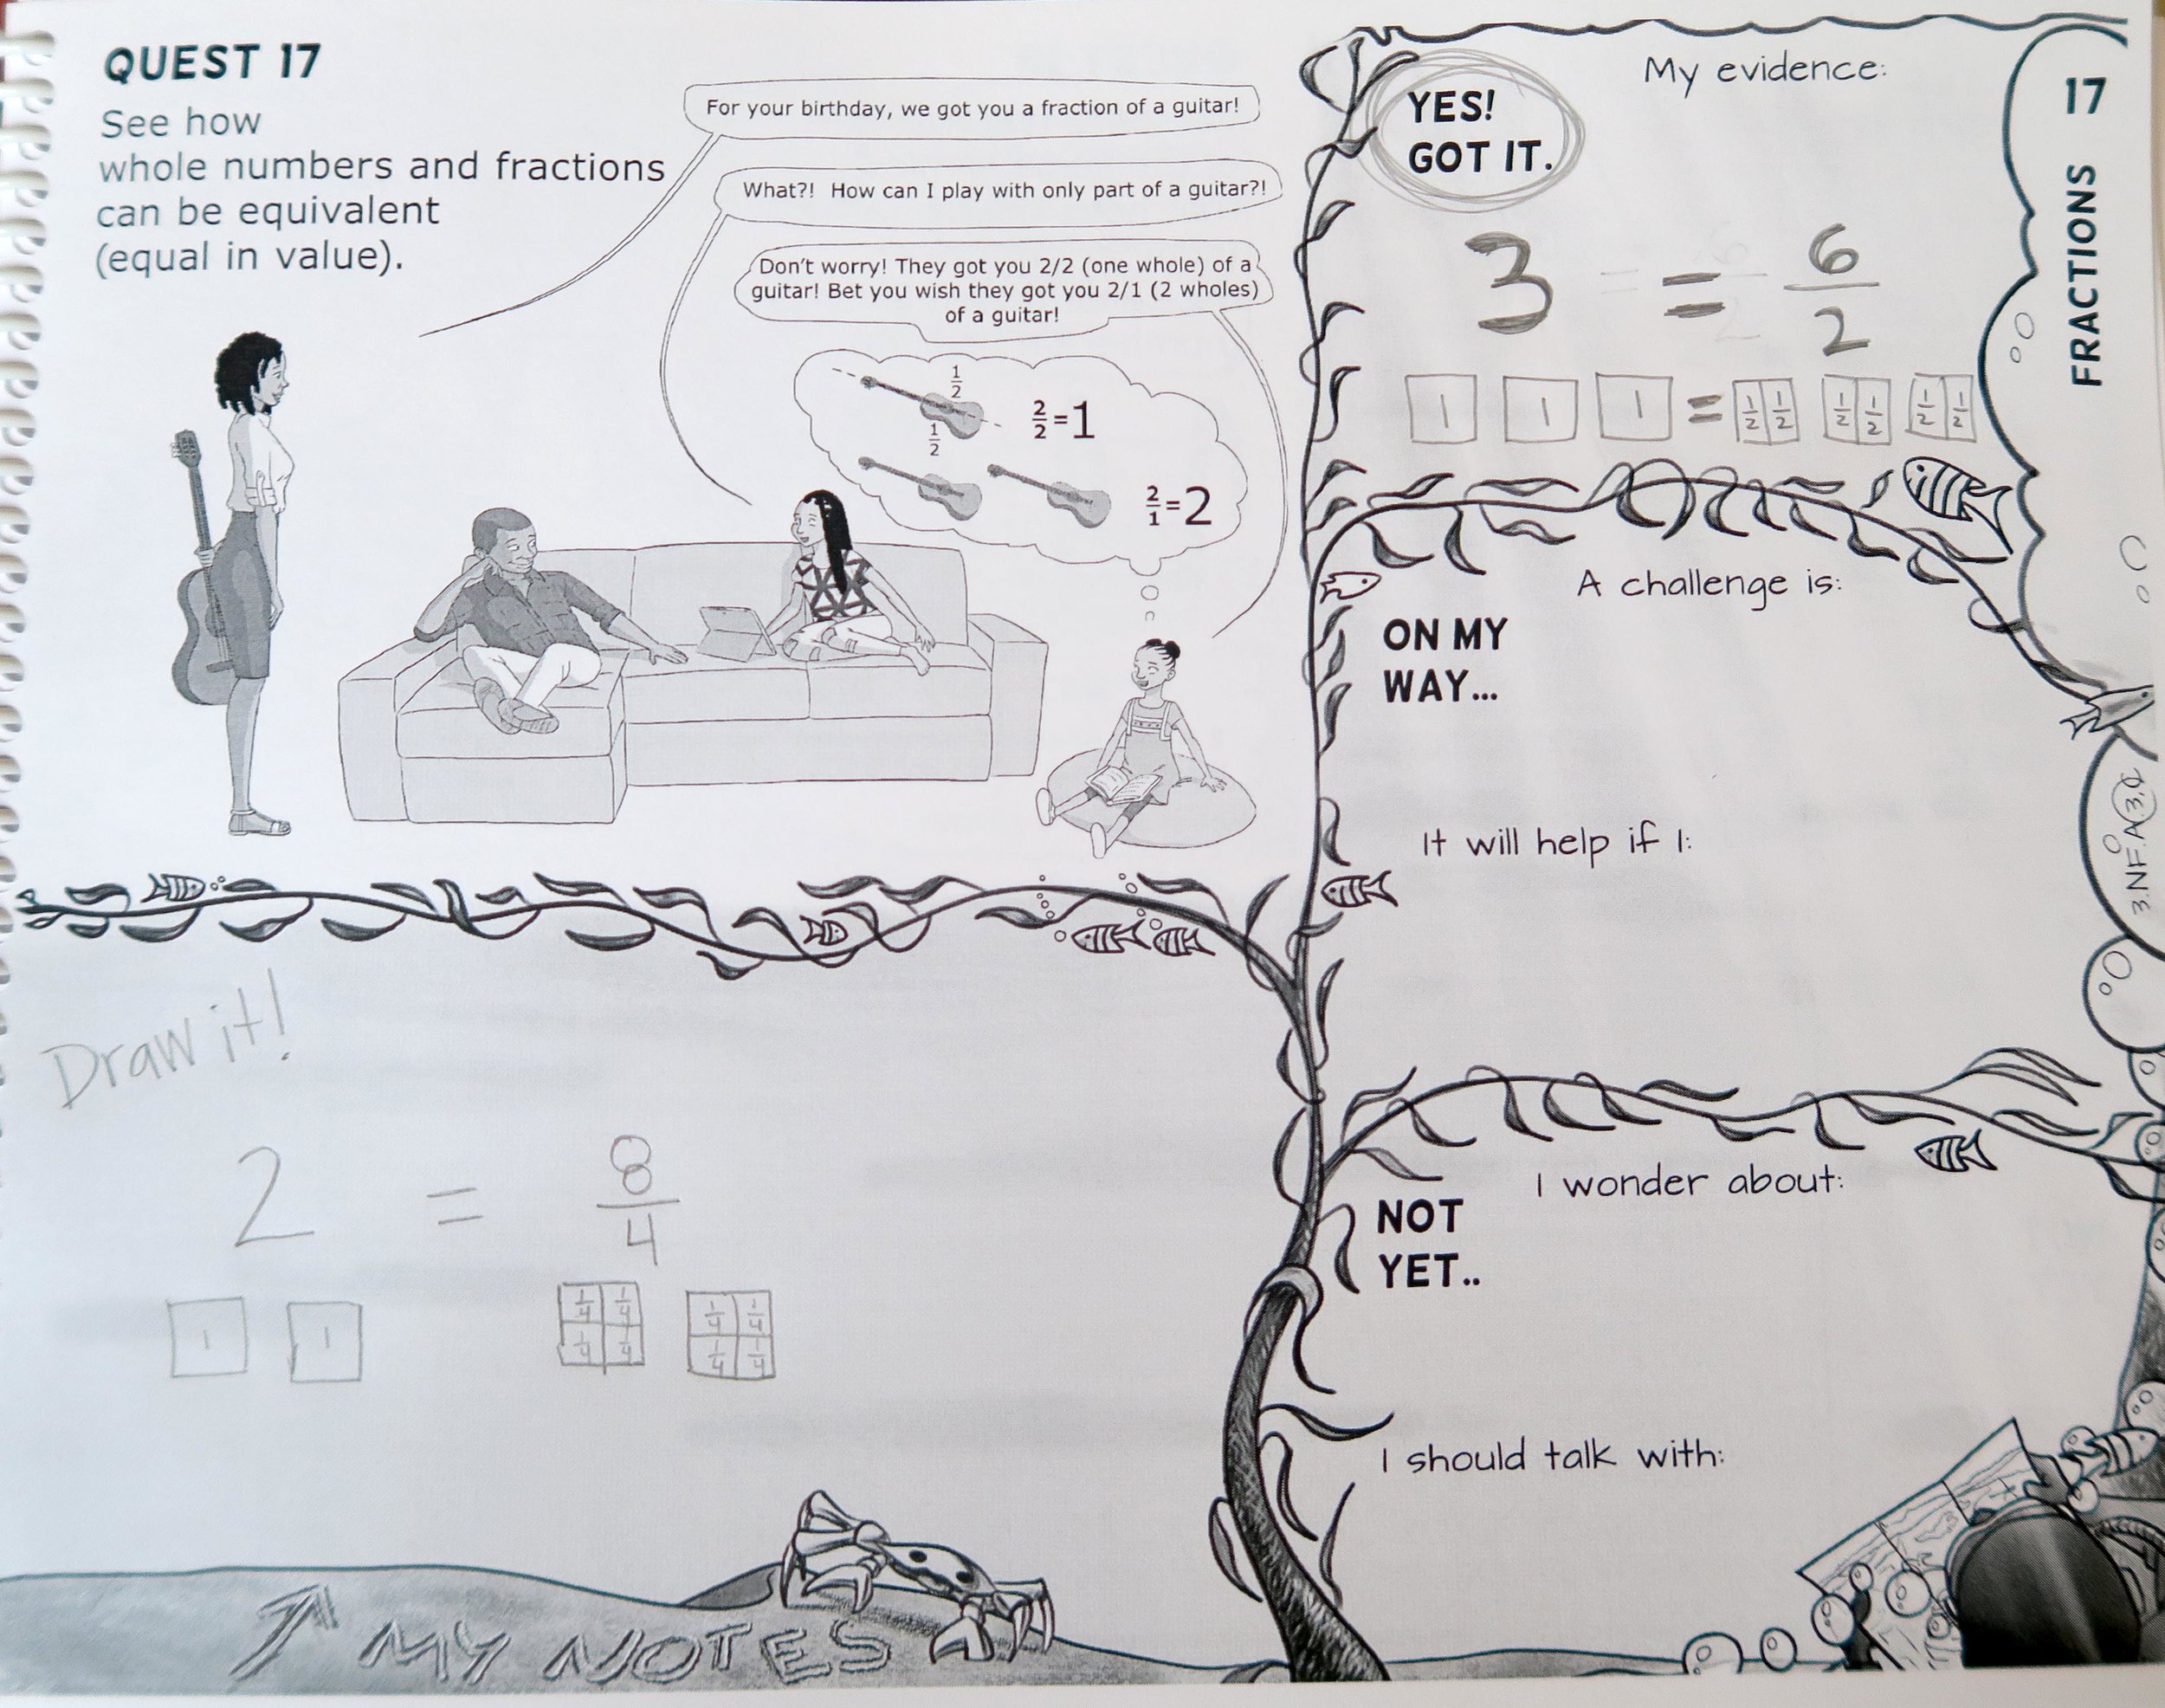 QUEST 17
See how
whole numbers and fractions
can be equivalent
(equal in value).
For your birthday, we got you a fraction of a guitar!
What?! How can I play with only part of a guitar?!
Don't worry! They got you 2/2 (one whole) of a
guitar! Bet you wish they got you 2/1 (2 wholes)
of a guitar!
1/2
1/2
2/2=1
2/1=2
Draw it!
2 = 8/4
1 1 1/4 1/4 1/4 1/4
1/4 1/4 1/4 1/4
MY NOTES
My evidence:
YES!
GOT IT.
3 = 6/2
1 1 1 = 1/2 1/2 1/2 1/2 1/2 1/2
A challenge is:
ON MY
WAY...
It will help if I:
I wonder about:
NOT
YET..
I should talk with:
17
FRACTIONS
3.NF.A.3.C